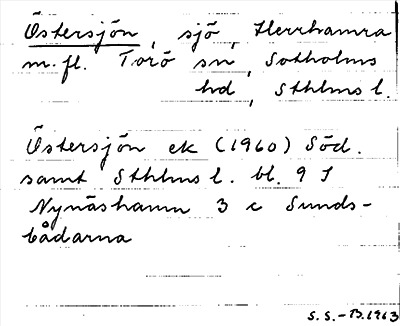 Östersjön, sjö, Herrhamra
m.fl. Torö sn, Sotholms
hd, Sthlms l.
Östersjön ek (1960) Söd.
samt Sthlms l. bl. 9 I
Nynäshamn 3 c Sunds-
bådarna
S.S.-B.1963